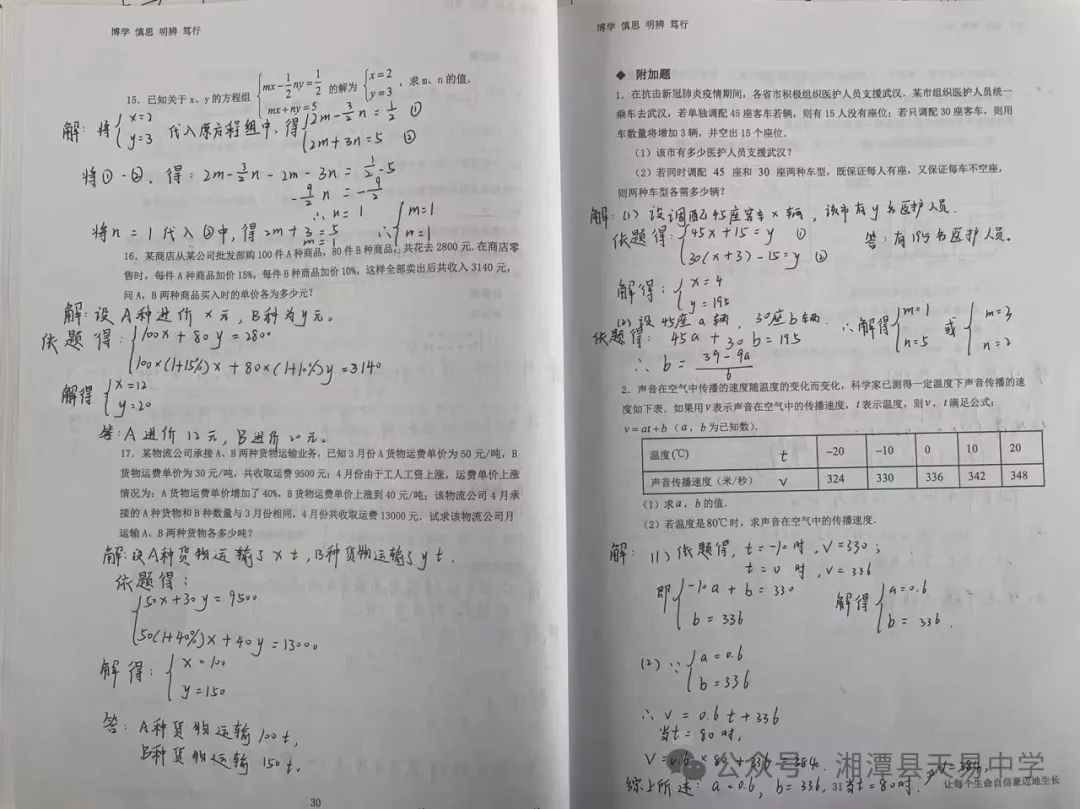 博学 慎思 明辨 笃行
15. 已知关于 x、y 的方程组 { mx-1/2ny=1/2 的解为 { x=2 ，求 m、n 的值.
mx+ny=5 y=3
解：将 { x=2 代入原方程组中，得 { 2m-3/2n=1/2 ①
y=3 2m+3n=5 ②
将①-②，得：2m-3/2n-2m-3n=1/2-5
-9/2n=-9/2
∴n=1
将n=1代入②中，得2m+3=5 ∴{ m=1
m=1 n=1
16. 某商店从某公司批发部购 100 件 A 种商品，80 件 B 种商品，共花去 2800 元. 在商店零
售时，每件 A 种商品加价 15%，每件 B 种商品加价 10%，这样全部卖出后共收入 3140 元，
问 A，B 两种商品买入时的单价各为多少元？
解：设A种进价x元，B种为y元。
依题得：{ 100x+80y=2800
100×(1+15%)x+80×(1+10%)y=3140
解得 { x=12
y=20
答：A进价12元，B进价20元。
17. 某物流公司承接 A、B 两种货物运输业务，已知 3 月份 A 货物运费单价为 50 元/吨，B
货物运费单价为 30 元/吨，共收取运费 9500 元；4 月份由于工人工资上涨，运费单价上涨
情况为：A 货物运费单价增加了 40%，B 货物运费单价上涨到 40 元/吨；该物流公司 4 月承
接的 A 种货物和 B 种数量与 3 月份相同，4 月份共收取运费 13000 元. 试求该物流公司月
运输 A、B 两种货物各多少吨？
解：设A种货物运输了x t，B种货物运输了y t.
依题得：
{ 50x+30y=9500
50(1+40%)x+40y=13000
解得：{ x=100
y=150
答：A种货物运输100t，
B种货物运输150t。
30
博学 慎思 明辨 笃行
◆ 附加题
1. 在抗击新冠肺炎疫情期间，各省市积极组织医护人员支援武汉. 某市组织医护人员统一
乘车去武汉，若单独调配 45 座客车若干辆，则有 15 人没有座位；若只调配 30 座客车，则用
车数量将增加 3 辆，并空出 15 个座位.
（1）该市有多少医护人员支援武汉？
（2）若同时调配 45 座和 30 座两种车型，既保证每人有座，又保证每车不空座，
则两种车型各需多少辆？
解：(1) 设调配45座客车x辆，该市有y名医护人员.
依题得：{ 45x+15=y ① 答：有195名医护人员。
30(x+3)-15=y ②
解得：{ x=4
y=195
(2) 设45座a辆，30座b辆. ∴解得{ m=1 或 { m=3
依题得：45a+30b=195 n=5 n=2
∴ b=(39-9a)/6
2. 声音在空气中传播的速度随温度的变化而变化，科学家已测得一定温度下声音传播的速
度如下表. 如果用 v 表示声音在空气中的传播速度，t 表示温度，则 v，t 满足公式：
v=at+b（a，b 为已知数）.
温度(℃) t -20 -10 0 10 20
声音传播速度（米/秒） v 324 330 336 342 348
（1）求 a，b 的值.
（2）若温度是80℃时，求声音在空气中的传播速度.
解：(1) 依题得，t=-10时，v=330；
t=0时，v=336
即{ -10a+b=330 解得{ a=0.6
b=336 b=336.
(2) ∵{ a=0.6
b=336
∴ v=0.6t+336
当t=80时，
v=0.6×80+336=384.
综上所述：a=0.6，b=336，当t=80时，v=384.
31
让每个生命自信豪迈地生长
公众号 · 湘潭县天易中学